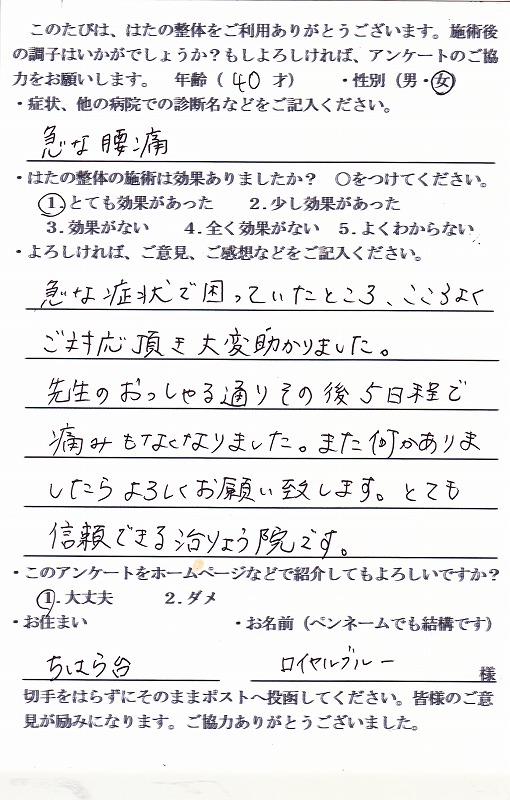 このたびは、はたの整体をご利用ありがとうございます。施術後
の調子はいかがでしょうか？もしよろしければ、アンケートのご協
力をお願いします。 年齢（ 40 才） ・性別（男・女）
・症状、他の病院での診断名などをご記入ください。
急な腰痛
・はたの整体の施術は効果ありましたか？ 〇をつけてください。
1.とても効果があった 2.少し効果があった
3.効果がない 4.全く効果がない 5.よくわからない
・よろしければ、ご意見、ご感想などをご記入ください。
急な症状で困っていたところ、こころよく
ご対応頂き大変助かりました。
先生のおっしゃる通りその後5日程で
痛みもなくなりました。また何かありま
したらよろしくお願い致します。とても
信頼できる治りょう院です。
・このアンケートをホームページなどで紹介してもよろしいですか？
1.大丈夫 2.ダメ
・お住まい ・お名前（ペンネームでも結構です）
ちはら台 ロイヤルブルー 様
切手をはらずにそのままポストへ投函してください。皆様のご意
見が励みになります。ご協力ありがとうございました。